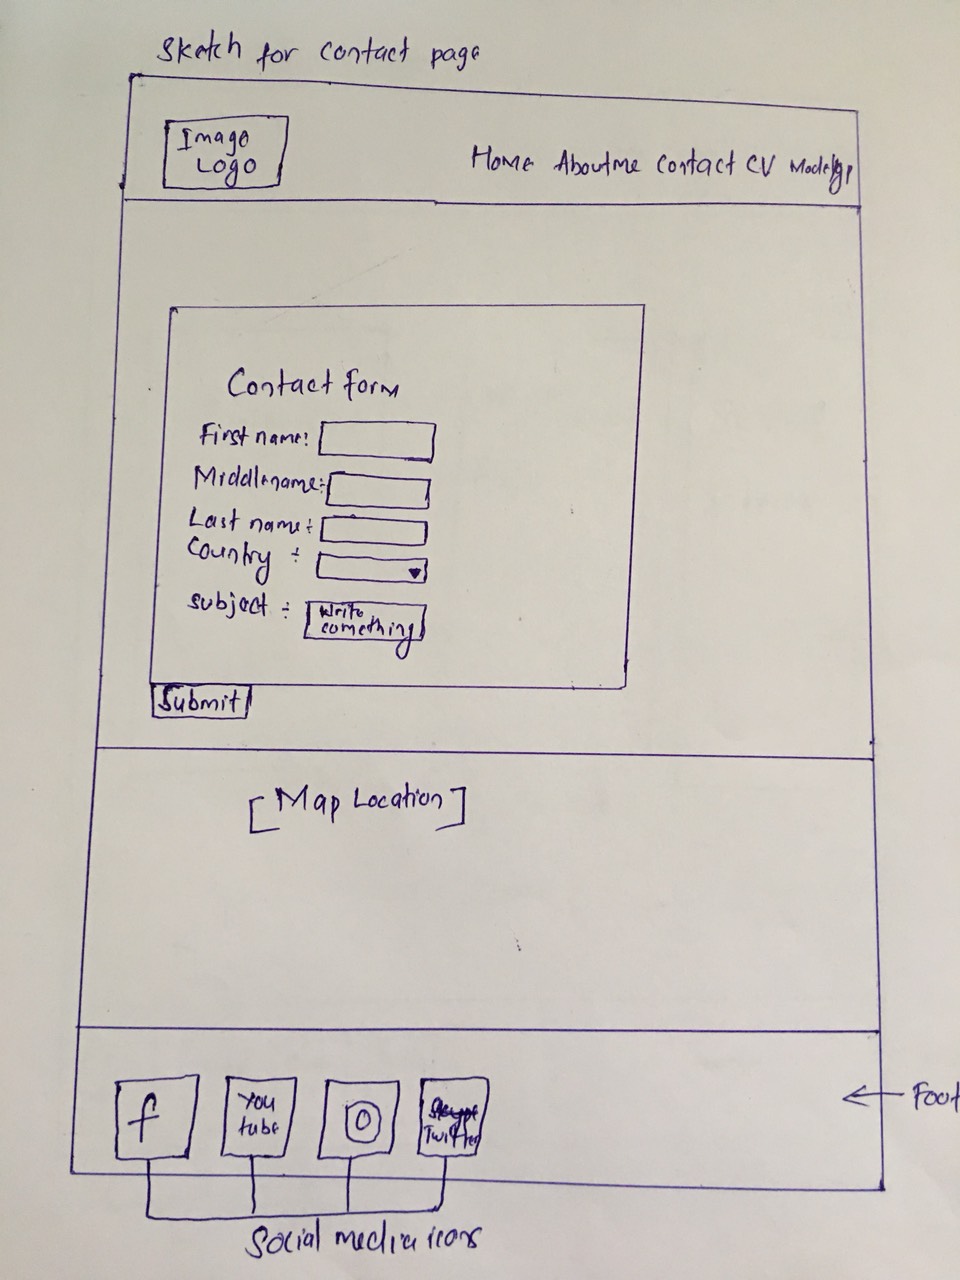 Sketch for contact page
Image
Logo
Home Aboutme Contact CV
Contact form
First name:
Middlename:
Last name:
Country :
Subject :
Write
something
Submit
[Map Location]
f
You
tube
Twitter
Foot
Social media icons